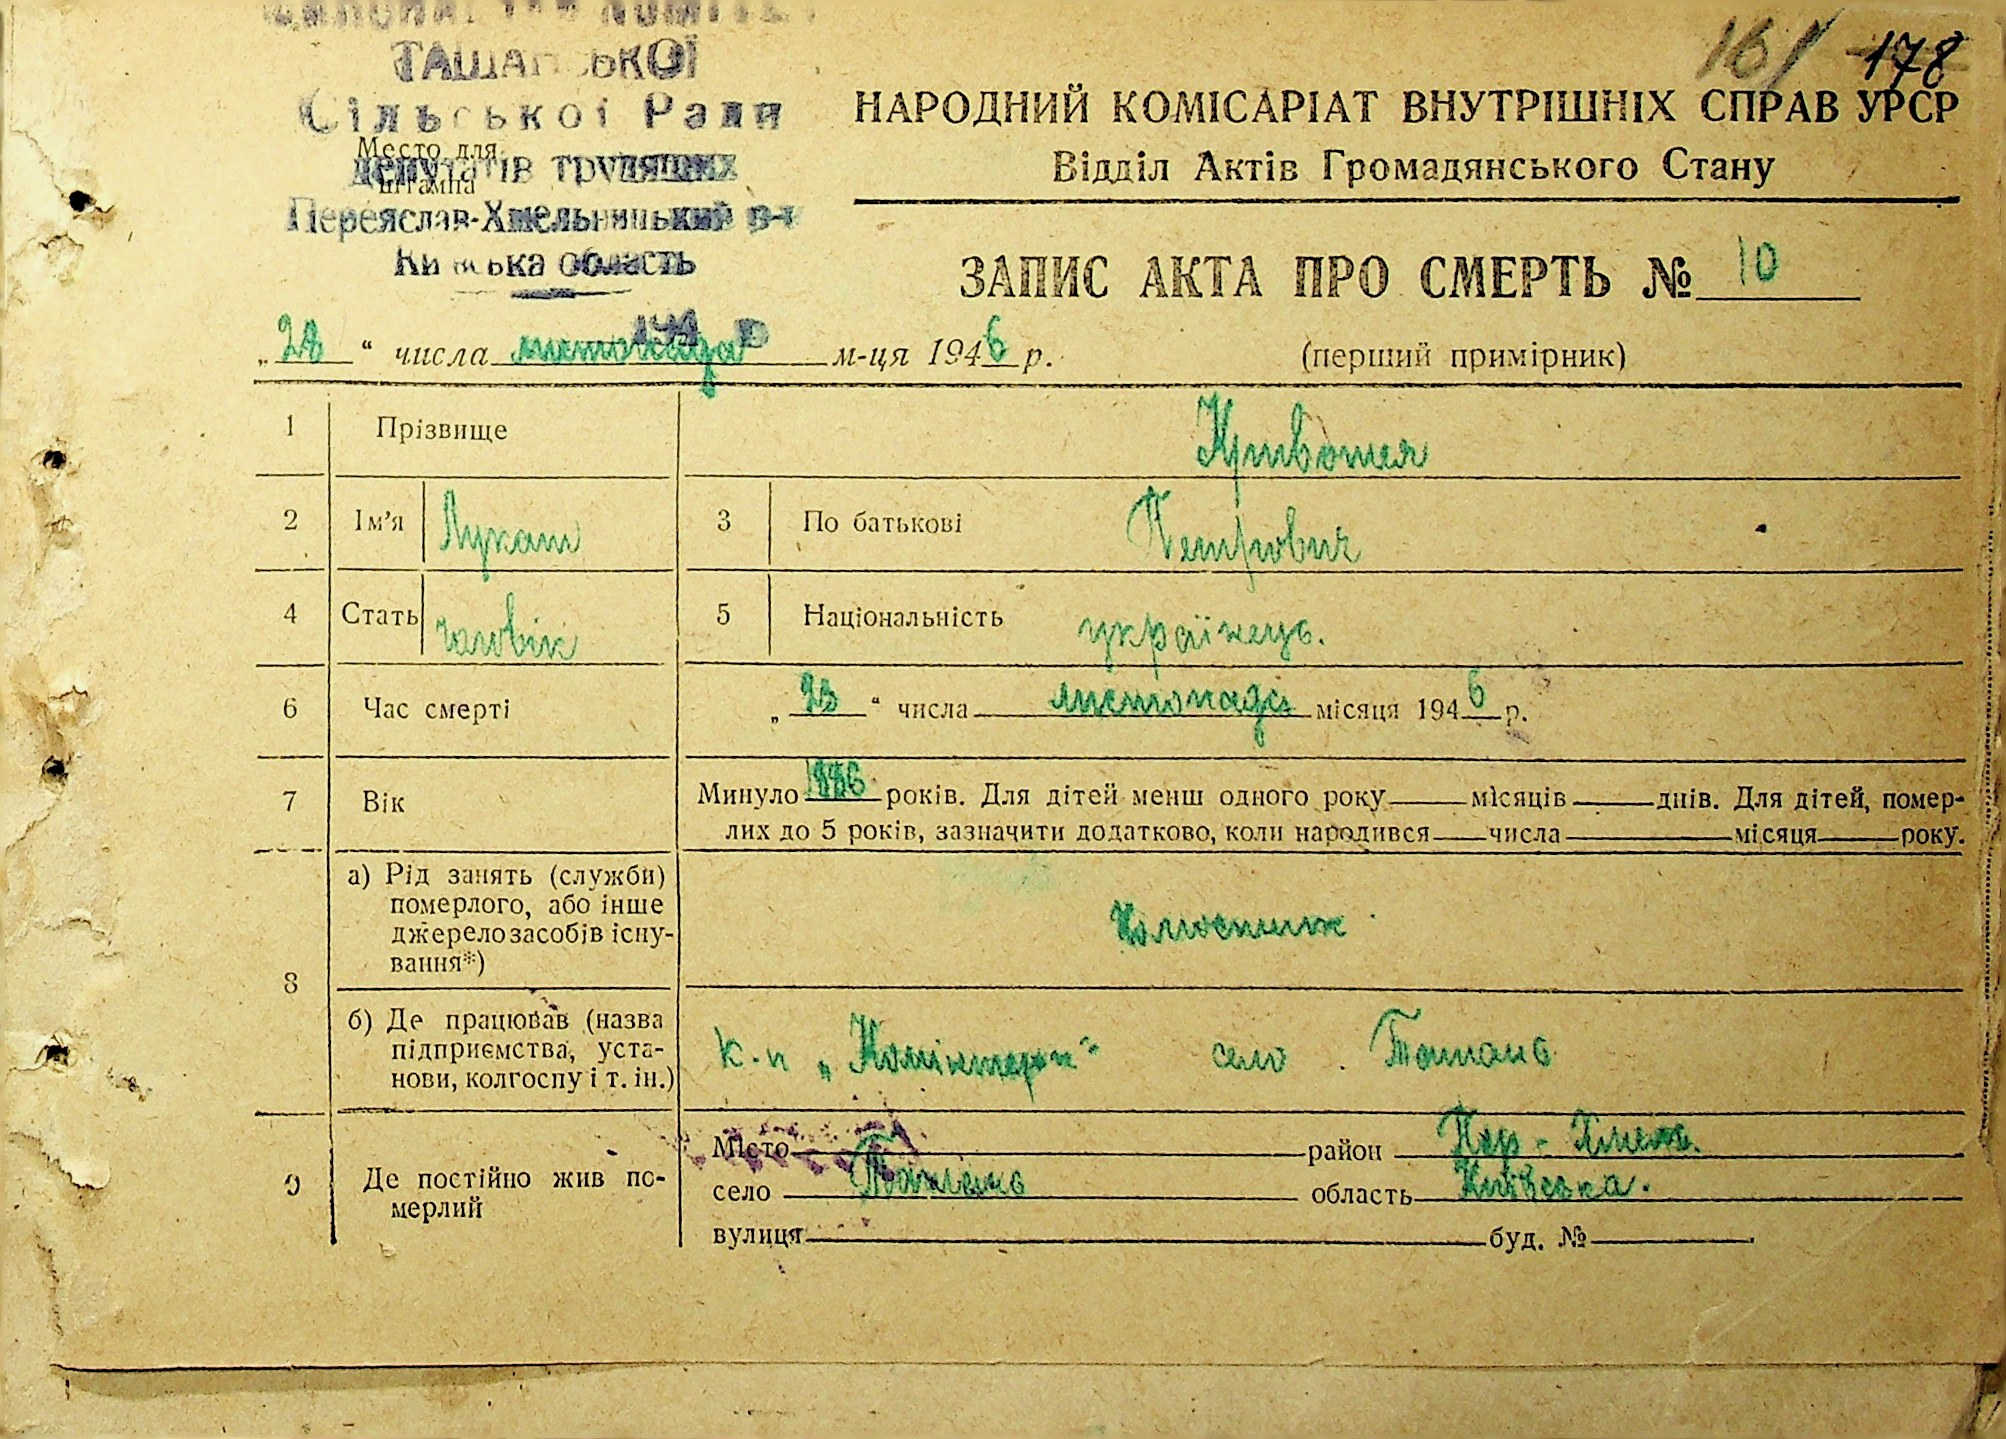 ТАШАНСЬКОЇ
Сільської Ради
Место для
депутатів трудящих
штампа
Переяслав-Хмельницький р-н
Київська область
161 178
НАРОДНИЙ КОМІСАРІАТ ВНУТРІШНІХ СПРАВ УРСР
Відділ Актів Громадянського Стану
ЗАПИС АКТА ПРО СМЕРТЬ № 10
„28“ числа листопада м-ця 1946 р. (перший примірник)
1 Прізвище Кривошея
2 Ім’я Лукаш 3 По батькові Петрович
4 Стать чоловік 5 Національність українець.
6 Час смерті „28“ числа листопада місяця 1946 р.
7 Вік Минуло 1886 років. Для дітей менш одного року місяців днів. Для дітей, помер-
лих до 5 років, зазначити додатково, коли народився числа місяця року.
8 а) Рід занять (служби)
померлого, або інше
джерело засобів існу-
вання*)
Колгоспник
б) Де працював (назва
підприємства, уста-
нови, колгоспу і т. ін.)
к-п „Комінтерн“ село Ташань
9 Де постійно жив по-
мерлий
Місто район Пер-Хмель.
село Ташань область Київська.
вулиця буд. №